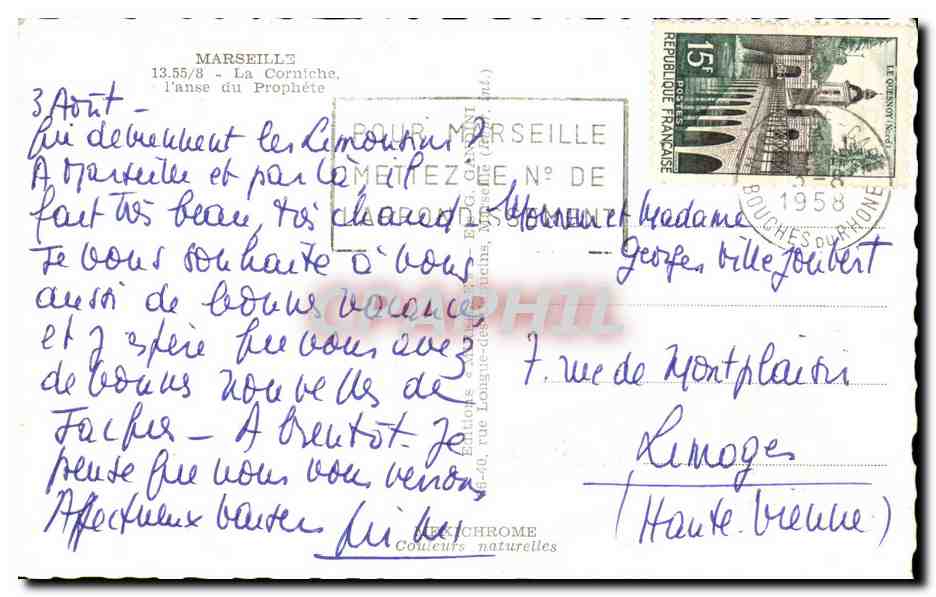 MARSEILLE
13.55/8 - La Corniche,
l'anse du Prophète
3 Août -
Qui deviennent les Limousins ?
A Marseille et par là il
fait très beau, très chaud -
Je vous souhaite à vous
aussi de bonnes vacances,
et j'espère que vous avez
de bonnes nouvelles de
Jacques - A bientôt - Je
pense que nous vous verrons
Affectueux baisers
POUR MARSEILLE
METTEZ LE Nº DE
L'ARRONDISSEMENT
Editions
rue Longue-des-Capucins, Marseille
MEXICHROME
Couleurs naturelles
15F
POSTES
REPUBLIQUE FRANÇAISE
LE QUESNOY (Nord)
1958
BOUCHES DU RHONE
Monsieur et Madame
Georges Villejoubert
7. rue de Montplaisir
Limoges
(Haute-Vienne)
CPAPHIL